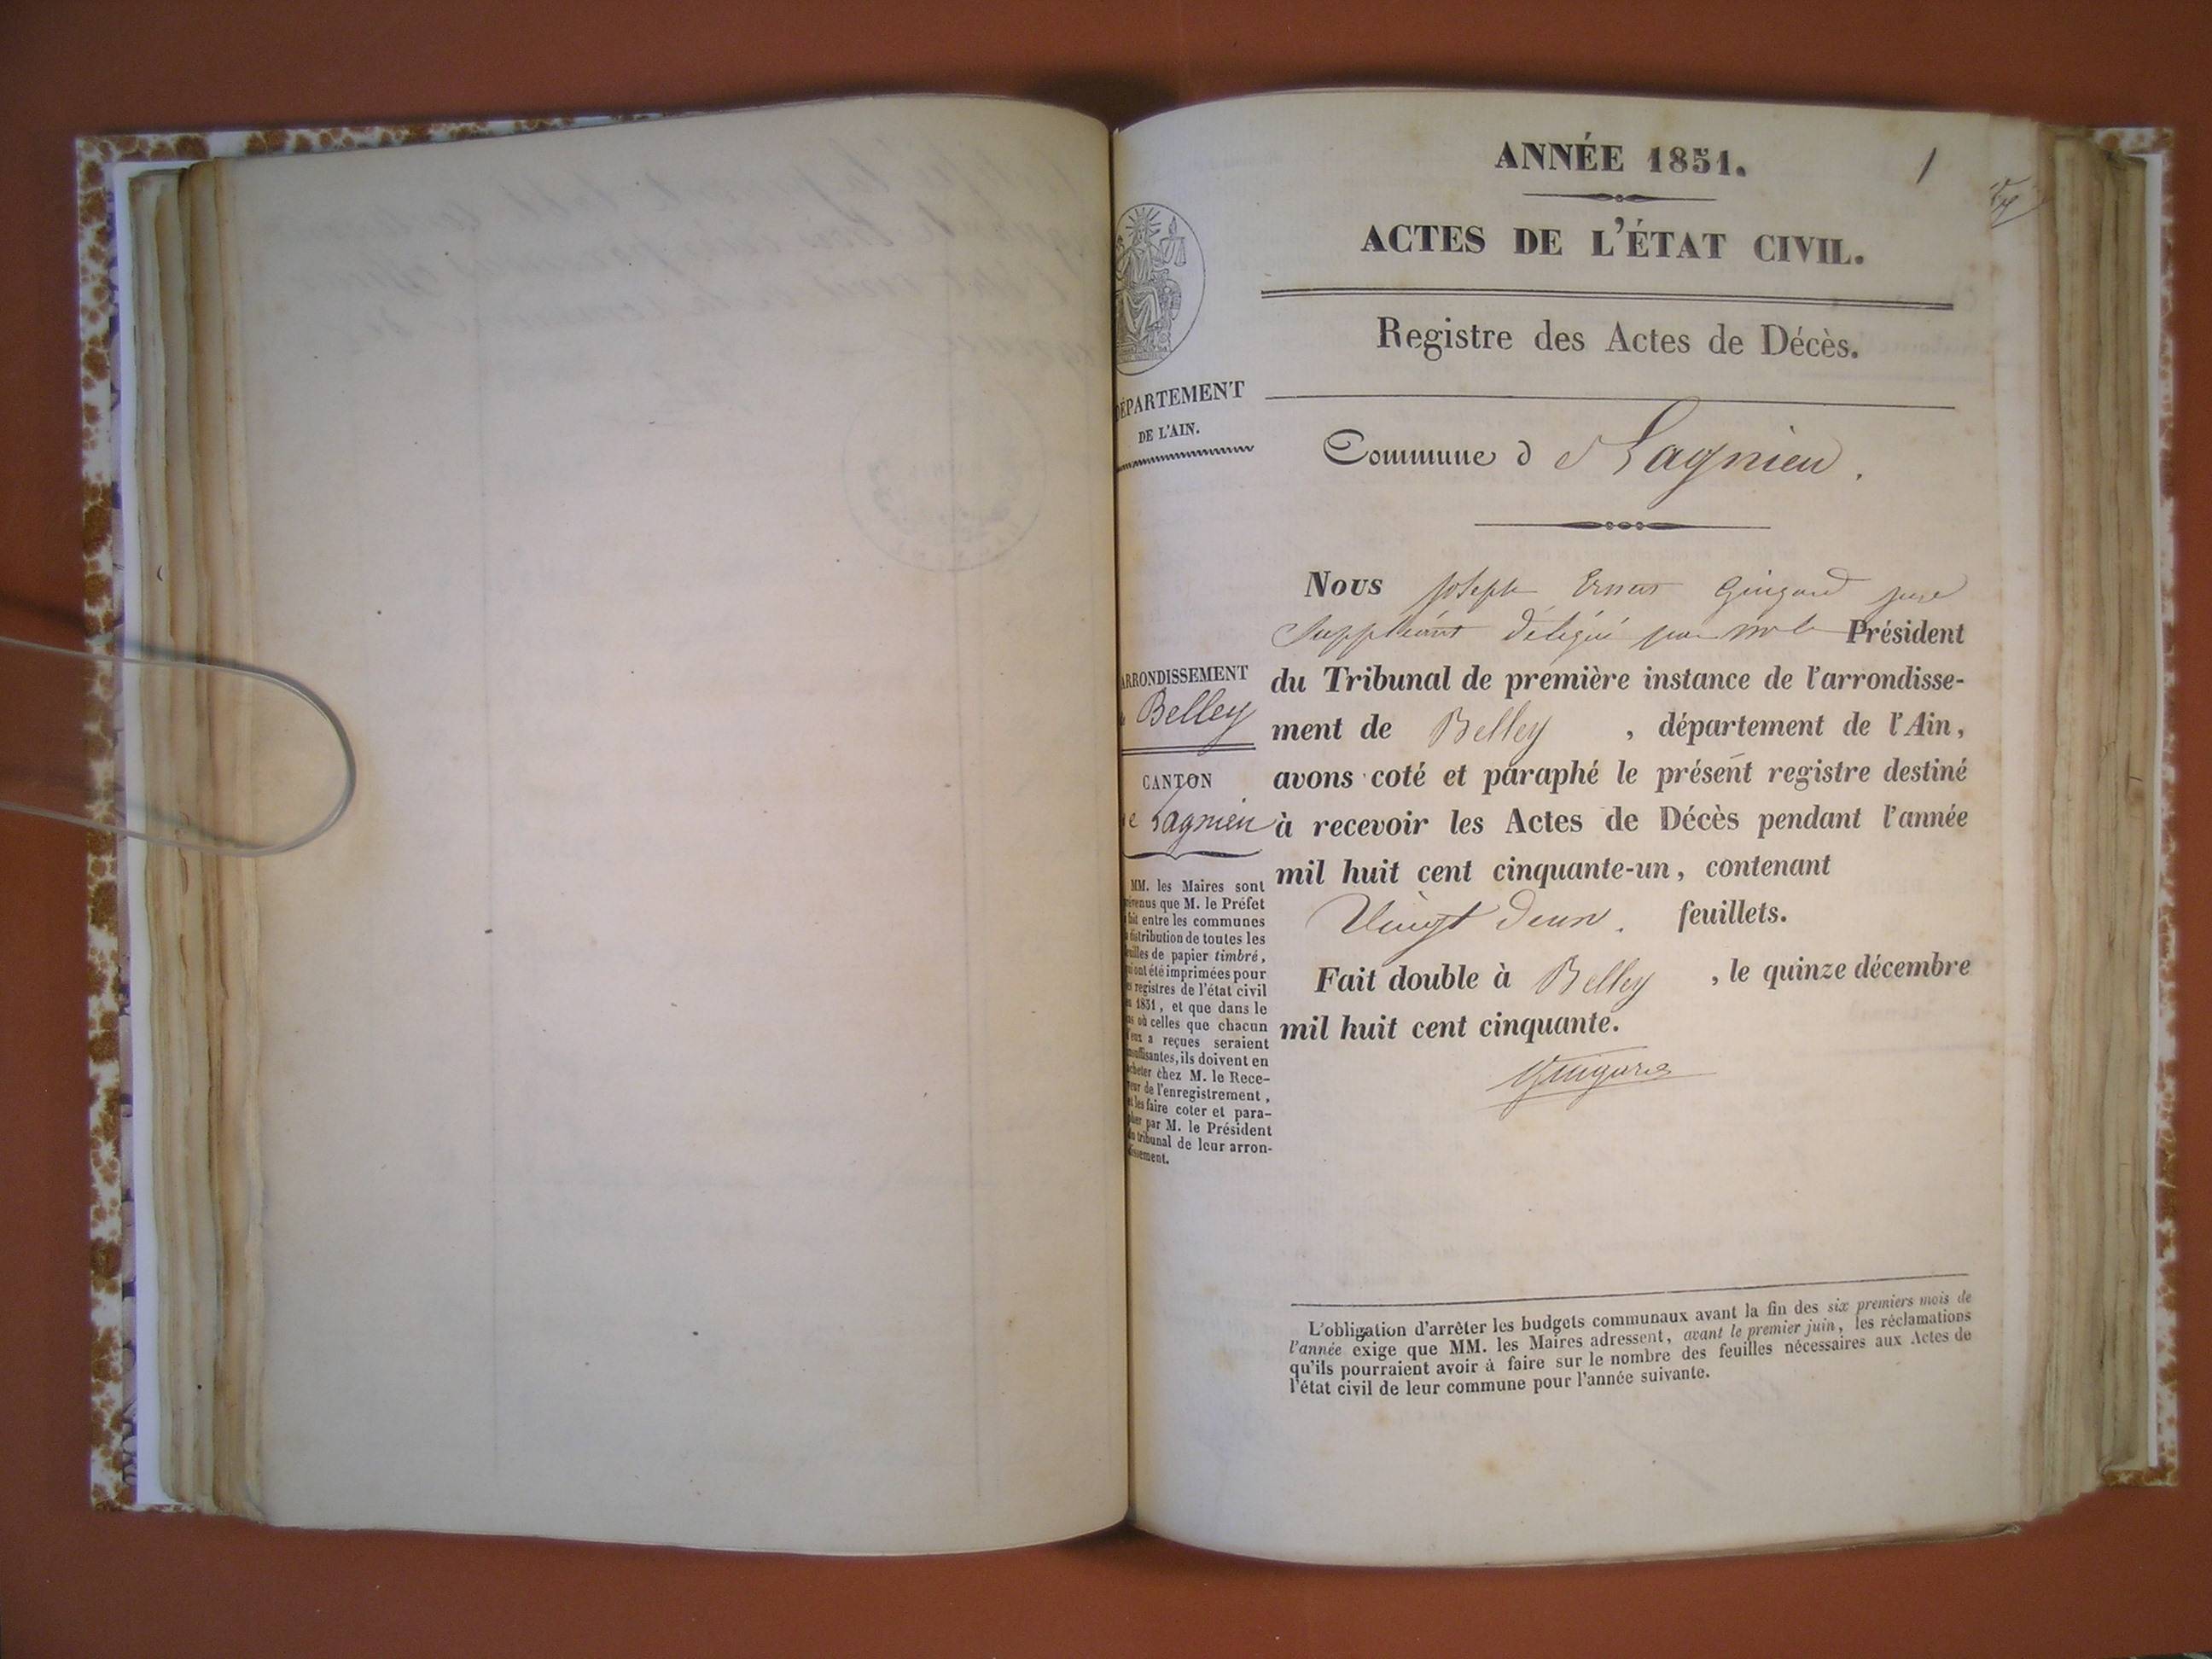 ANNÉE 1851.
1
ACTES DE L'ÉTAT CIVIL.
Registre des Actes de Décès.
DÉPARTEMENT
DE L'AIN.
Commune de Lagnieu.
ARRONDISSEMENT
de Belley
CANTON
de Lagnieu
MM. les Maires sont
prévenus que M. le Préfet
a fait entre les communes
la distribution de toutes les
feuilles de papier timbré,
qui ont été imprimées pour
les registres de l'état civil
en 1851, et que dans le
cas où celles que chacun
d'eux a reçues seraient
insuffisantes, ils doivent en
acheter chez M. le Rece-
veur de l'enregistrement,
et les faire coter et para-
pher par M. le Président
du tribunal de leur arron-
dissement.
Nous Joseph Guigard juge
Suppléant délégué par Président
du Tribunal de première instance de l'arrondisse-
ment de Belley, département de l'Ain,
avons coté et paraphé le présent registre destiné
à recevoir les Actes de Décès pendant l'année
mil huit cent cinquante-un, contenant
Vingt deux. feuillets.
Fait double à Belley, le quinze décembre
mil huit cent cinquante.
Guigard
L'obligation d'arrêter les budgets communaux avant la fin des six premiers mois de
l'année exige que MM. les Maires adressent, avant le premier juin, les réclamations
qu'ils pourraient avoir à faire sur le nombre des feuilles nécessaires aux Actes de
l'état civil de leur commune pour l'année suivante.